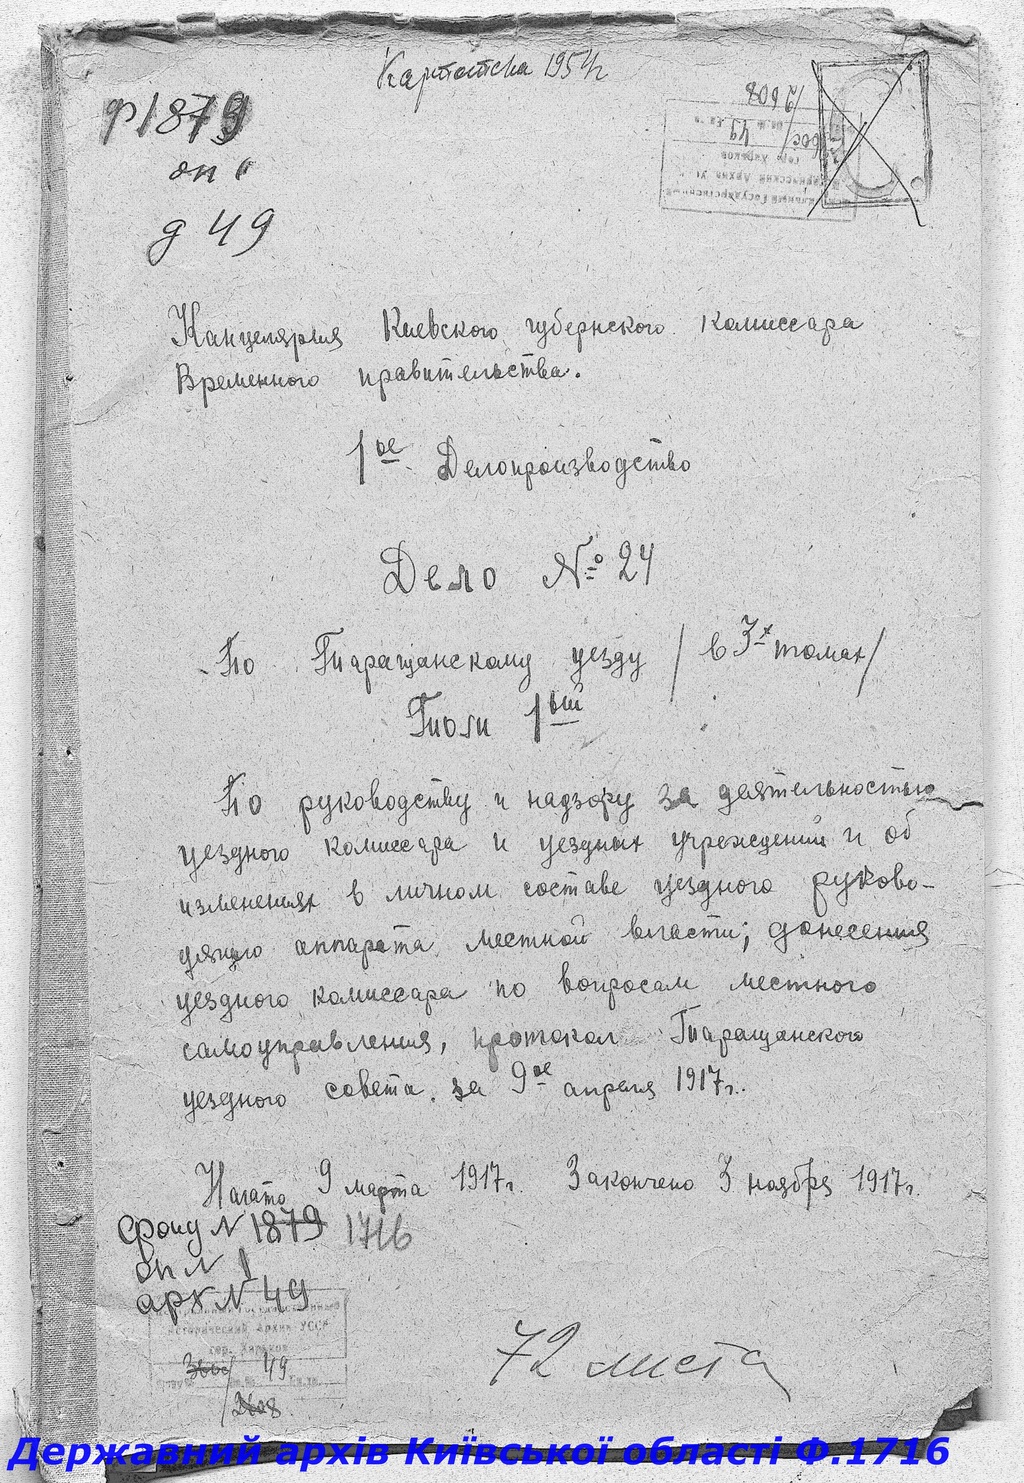 Картотека 195
ф 1879
оп 1
д 49
Канцелярия Киевского губернского комиссара
Временного правительства.
1ое Делопроизводство
Дело № 24
По Таращанскому уезду / в 3х томах/
Том 1ый
По руководству и надзору за деятельностью
уездного комиссара и уездных учреждений и об
изменениях в личном составе уездного руково-
дящего аппарата местной власти; донесения
уездного комиссара по вопросам местного
самоуправления, протокол Таращанского
уездного совета за 9ое апреля 1917г.
Начато 9 марта 1917г. Закончено 3 ноября 1917г.
Фонд N 1879 1716
оп N 1
арх N 49
Исторический Архив УССР
гор. Харьков
49
72 листа
Державний архів Київської області Ф.1716